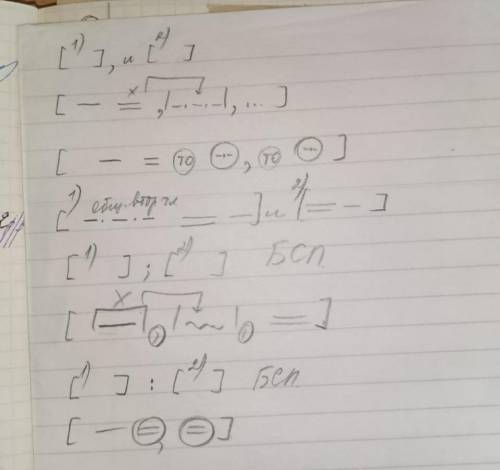 [1) ], и [2) ]
[ — =, |—.—.—|, ...]
[ — = то ⊖, то ⊖ ]
[1) общ. втор. чл = —] и 2)[= — ]
[1) ] ; [2) ] БСП
[ |—|, |~~|, = ]
[1) ] : [2) ] БСП.
[ — =, = ]